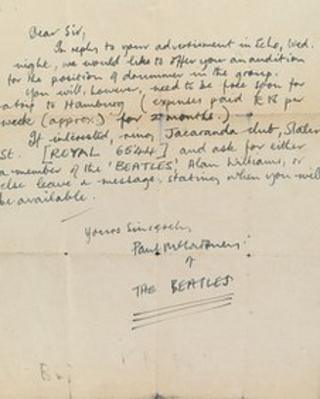 Dear Sir,
In reply to your advertisement in Echo, Wed.
night, we would like to offer you an audition
for the position of drummer in the group.
You will, however, need to be free soon for
a trip to Hamburg (expenses paid £18 per
week (approx.) for 2 months.)
If interested, ring Jacaranda club, Slater
St. [ROYAL 6544] and ask for either
a member of the 'BEATLES', Alan Williams, or
else leave a message, stating when you will
be available.
Yours Sincerely,
Paul McCartney
THE BEATLES